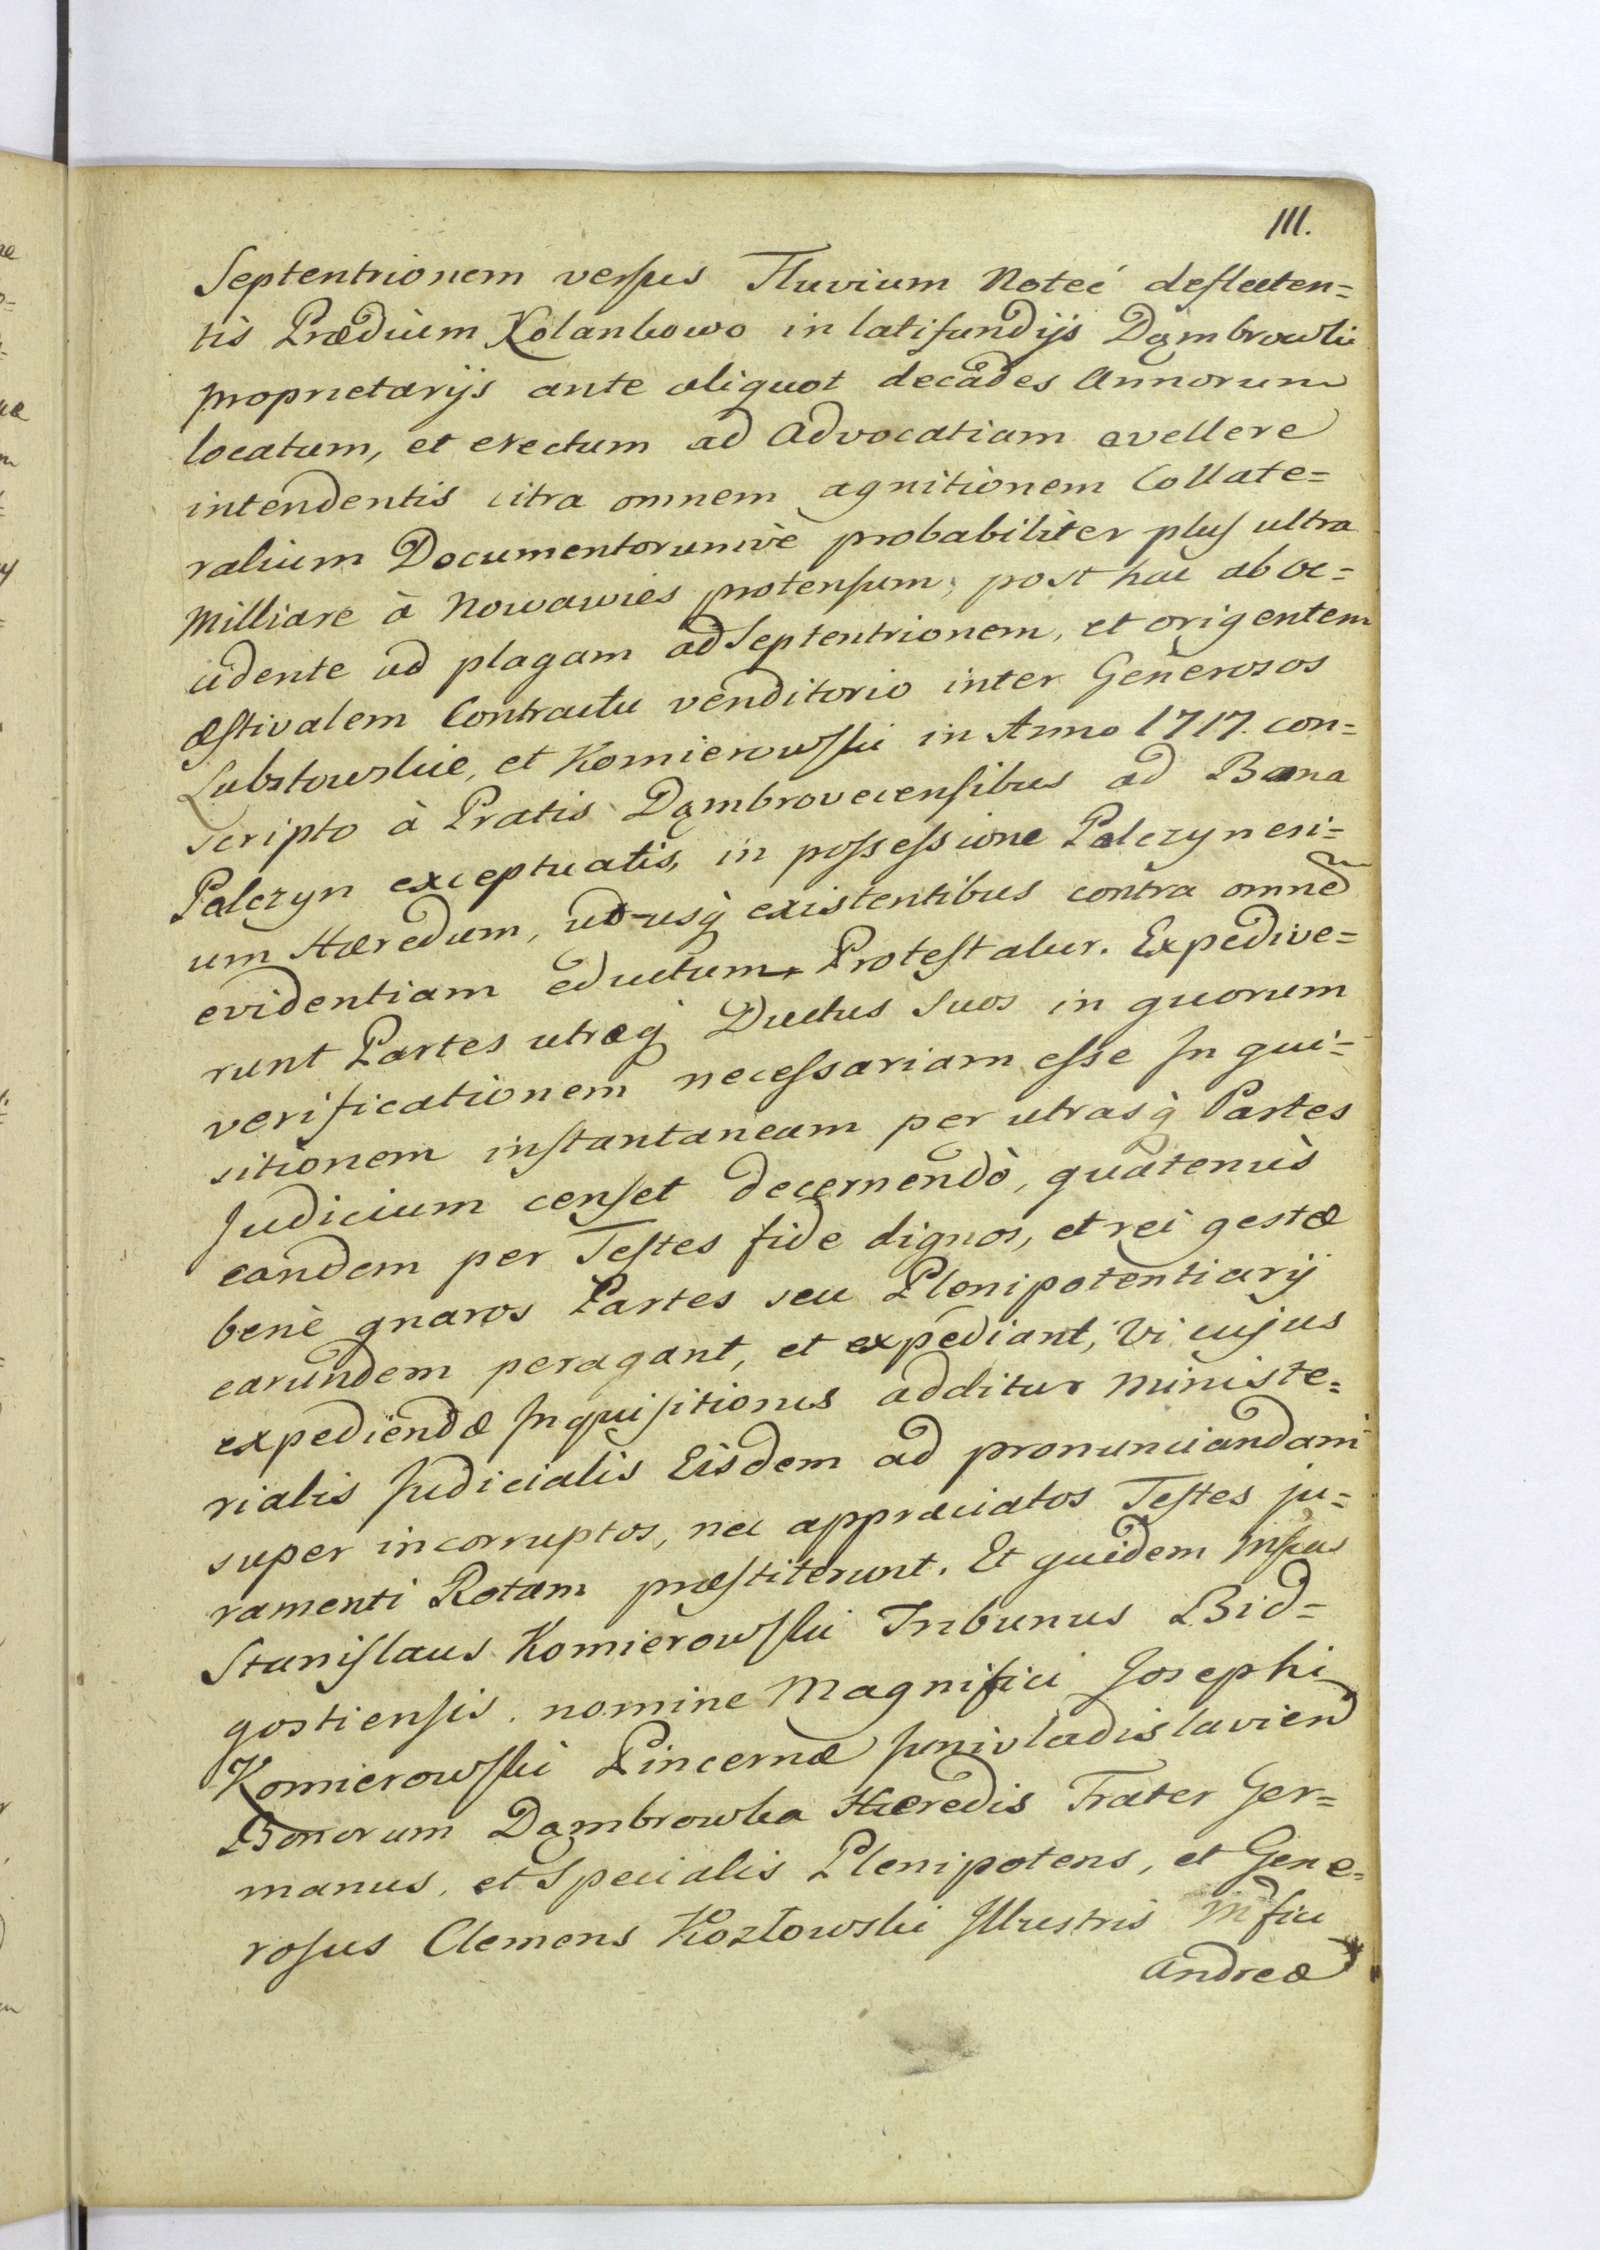 111.
Septentrionem versus Fluvium Noteć deflecten=
tis Prædium Kolankowo in latifundijs Dąmbrowki
proprietarijs ante aliquot decades Annorum
locatum, et erectum ad Advocatiam avellere
intendentis citra omnem agnitionem Collate=
ralium Documentorumvè probabiliter plus ultra
Milliare à Nowawies protensum, post hac ab oc=
cidente ad plagam ad Septentrionem, et origentem
æstivalem Contractu venditorio inter Generosos
Lubstowskie, et Komierowski in Anno 1717. con=
scripto à Pratis Dąmbrovecensibus ad Bona
Palczyn exceptuatis, in possessione Palczynen=
um Hæredum, ad usq existentibus contra omnem
evidentiam eductum Protestatur. Expedive=
runt Partes utræq Ductus suos in quorum
verificationem necessariam esse Inqui=
sitionem instantaneam per utrasq Partes
Judicium censet decernendò, quatenùs
eandem per Testes fide dignos, et rei gestæ
benè gnaros Partes seu Plenipotentiarij
earundem peragant, et expediant, Vi cujus
expediendæ Inquisitionis additur Ministe=
rialis Judicialis Eisdem ad pronunciandam
super incorruptos, nec appraeciatos Testes ju=
ramenti Rotam præstiterunt. Et quidem
Stanislaus Komierowski Tribunus Bid=
gostiensis. nomine Magnifici Josephi
Komierowski Pincernæ Junivladislavien
Bonorum Dąmbrowka Hæredis Frater Ger=
manus, et Specialis Plenipotens, et Gene=
rosus Clemens Kozłowski Illustris Mfici
Andreæ